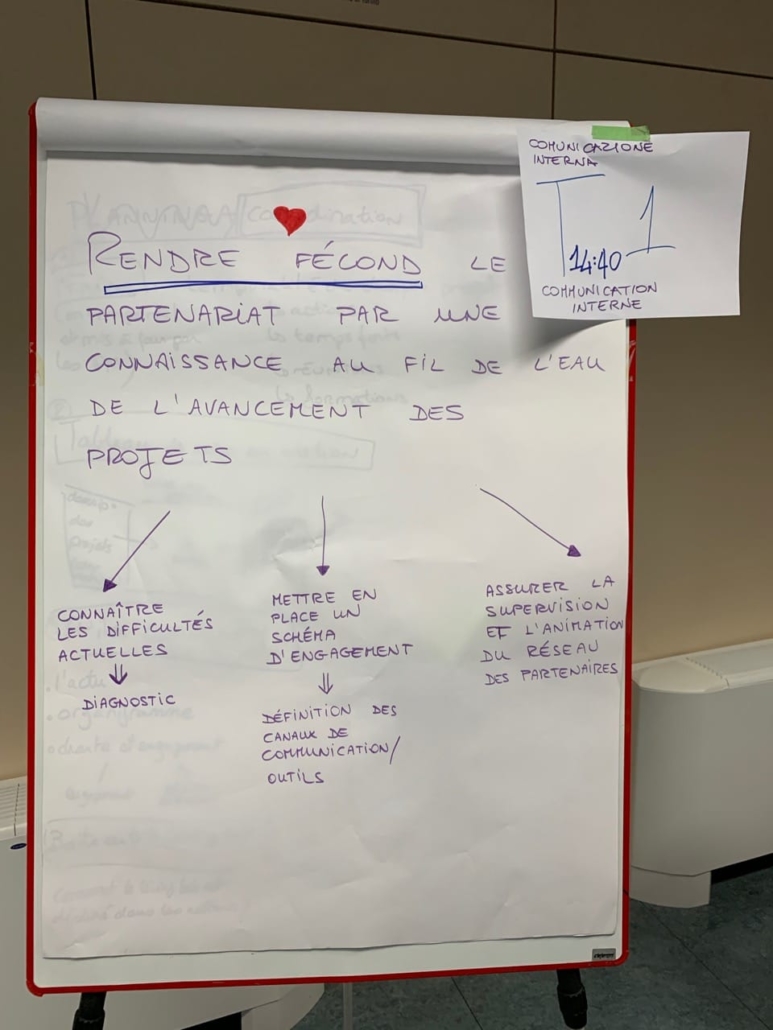 COMUNICAZIONE
INTERNA
T 1
14:40
COMMUNICATION
INTERNE
RENDRE FÉCOND LE
PARTENARIAT PAR UNE
CONNAISSANCE AU FIL DE L'EAU
DE L'AVANCEMENT DES
PROJETS
CONNAÎTRE
LES DIFFICULTÉS
ACTUELLES
DIAGNOSTIC
METTRE EN
PLACE UN
SCHÉMA
D'ENGAGEMENT
DÉFINITION DES
CANAUX DE
COMMUNICATION/
OUTILS
ASSURER LA
SUPERVISION
ET L'ANIMATION
DU RÉSEAU
DES PARTENAIRES